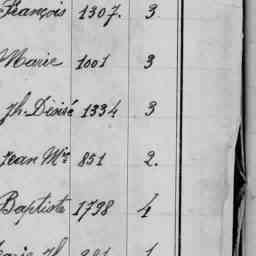 François 1307. 3
Marie 1001 3
Jh. Désiré 1334 3
Jean Mie 851 2.
Baptiste 1798 4